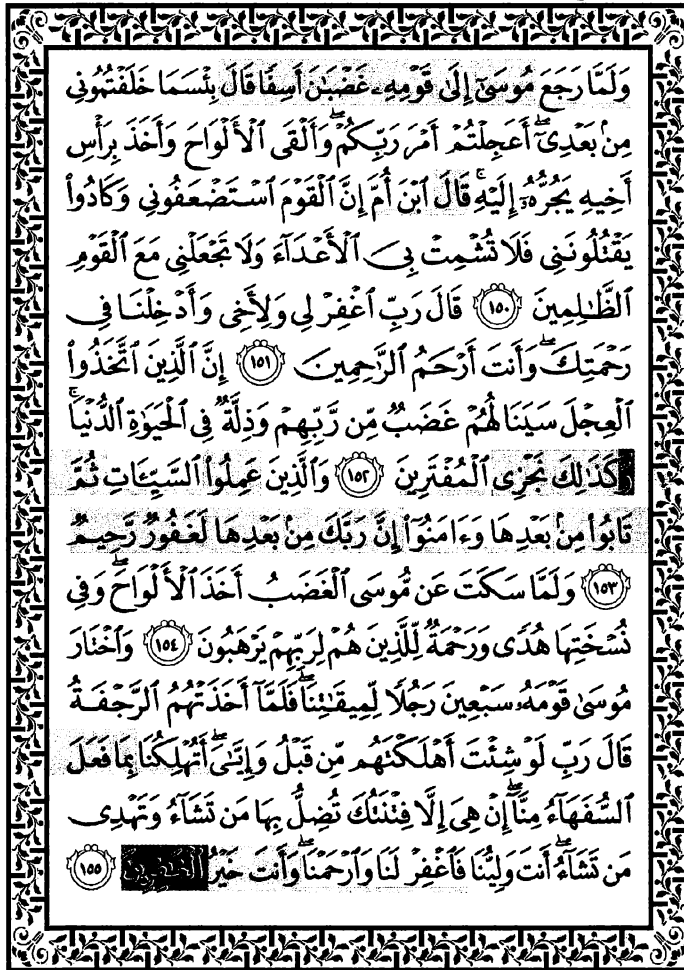 وَلَمَّا رَجَعَ مُوسَىٰٓ إِلَىٰ قَوْمِهِۦ غَضْبَٰنَ أَسِفًا قَالَ بِئْسَمَا خَلَفْتُمُونِى
مِنۢ بَعْدِىٓ ۖ أَعَجِلْتُمْ أَمْرَ رَبِّكُمْ ۖ وَأَلْقَى ٱلْأَلْوَاحَ وَأَخَذَ بِرَأْسِ
أَخِيهِ يَجُرُّهُۥٓ إِلَيْهِ ۚ قَالَ ٱبْنَ أُمَّ إِنَّ ٱلْقَوْمَ ٱسْتَضْعَفُونِى وَكَادُوا۟
يَقْتُلُونَنِى فَلَا تُشْمِتْ بِىَ ٱلْأَعْدَآءَ وَلَا تَجْعَلْنِى مَعَ ٱلْقَوْمِ
ٱلظَّٰلِمِينَ ١٥٠ قَالَ رَبِّ ٱغْفِرْ لِى وَلِأَخِى وَأَدْخِلْنَا فِى
رَحْمَتِكَ ۖ وَأَنتَ أَرْحَمُ ٱلرَّٰحِمِينَ ١٥١ إِنَّ ٱلَّذِينَ ٱتَّخَذُوا۟
ٱلْعِجْلَ سَيَنَالُهُمْ غَضَبٌ مِّن رَّبِّهِمْ وَذِلَّةٌ فِى ٱلْحَيَوٰةِ ٱلدُّنْيَا ۚ
كَذَٰلِكَ نَجْزِى ٱلْمُفْتَرِينَ ١٥٢ وَٱلَّذِينَ عَمِلُوا۟ ٱلسَّيِّـَٔاتِ ثُمَّ
تَابُوا۟ مِنۢ بَعْدِهَا وَءَامَنُوٓا۟ إِنَّ رَبَّكَ مِنۢ بَعْدِهَا لَغَفُورٌ رَّحِيمٌ
١٥٣ وَلَمَّا سَكَتَ عَن مُّوسَى ٱلْغَضَبُ أَخَذَ ٱلْأَلْوَاحَ ۖ وَفِى
نُسْخَتِهَا هُدًى وَرَحْمَةٌ لِّلَّذِينَ هُمْ لِرَبِّهِمْ يَرْهَبُونَ ١٥٤ وَٱخْتَارَ
مُوسَىٰ قَوْمَهُۥ سَبْعِينَ رَجُلًا لِّمِيقَٰتِنَا ۖ فَلَمَّآ أَخَذَتْهُمُ ٱلرَّجْفَةُ
قَالَ رَبِّ لَوْ شِئْتَ أَهْلَكْتَهُم مِّن قَبْلُ وَإِيَّٰىَ ۖ أَتُهْلِكُنَا بِمَا فَعَلَ
ٱلسُّفَهَآءُ مِنَّآ ۖ إِنْ هِىَ إِلَّا فِتْنَتُكَ تُضِلُّ بِهَا مَن تَشَآءُ وَتَهْدِى
مَن تَشَآءُ ۖ أَنتَ وَلِيُّنَا فَٱغْفِرْ لَنَا وَٱرْحَمْنَا ۖ وَأَنتَ خَيْرُ ٱلْغَٰفِرِينَ ١٥٥